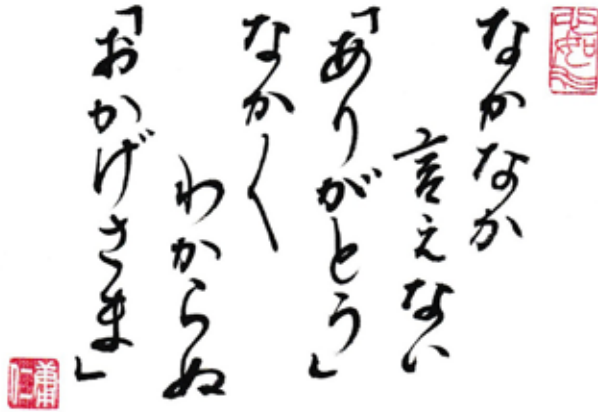 なかなか
言えない
「ありがとう」
なか〱
わからぬ
「おかげさま」